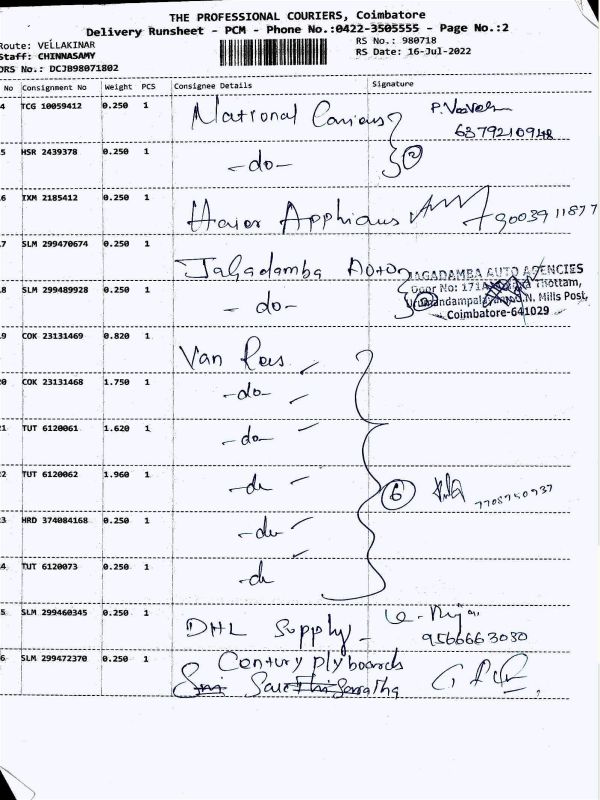 THE PROFESSIONAL COURIERS, Coimbatore
Delivery Runsheet - PCM - Phone No.:0422-3505555 - Page No.:2
Route: VELLAKINAR
RS No.: 980718
Staff: CHINNASAMY
RS Date: 16-Jul-2022
DRS No.: DCJ098071802
No Consignment No Weight PCS Consignee Details Signature
4 TCG 10059412 0.250 1 National
5 HSR 2439378 0.250 1 -do- 2
6 IXM 2185412 0.250 1 Haier
7 SLM 299470674 0.250 1 Jagadamba Auto
JAGADAMBA AUTO AGENCIES
Door No: 171A Thottam,
8 SLM 299489928 0.250 1 -do- 2
S.N. Mills Post,
Coimbatore-641029
9 COK 23131469 0.820 1 Van
0 COK 23131468 1.750 1 -do-
1 TUT 6120061 1.620 1 -do-
2 TUT 6120062 1.960 1 -do- 6
3 HRD 374084168 0.250 1 -do-
4 TUT 6120073 0.250 1 -do
5 SLM 299460345 0.250 1 DHL Supply - 9566663030
6 SLM 299472370 0.250 1 Century plyboards